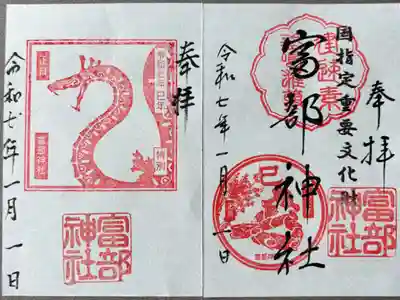 奉拝
国指定重要文化財
富部神社
令和七年一月一日
巳
富部
神社
奉拝
令和七年巳年
特別
正月
富部神社
令和七年一月一日
富部
神社